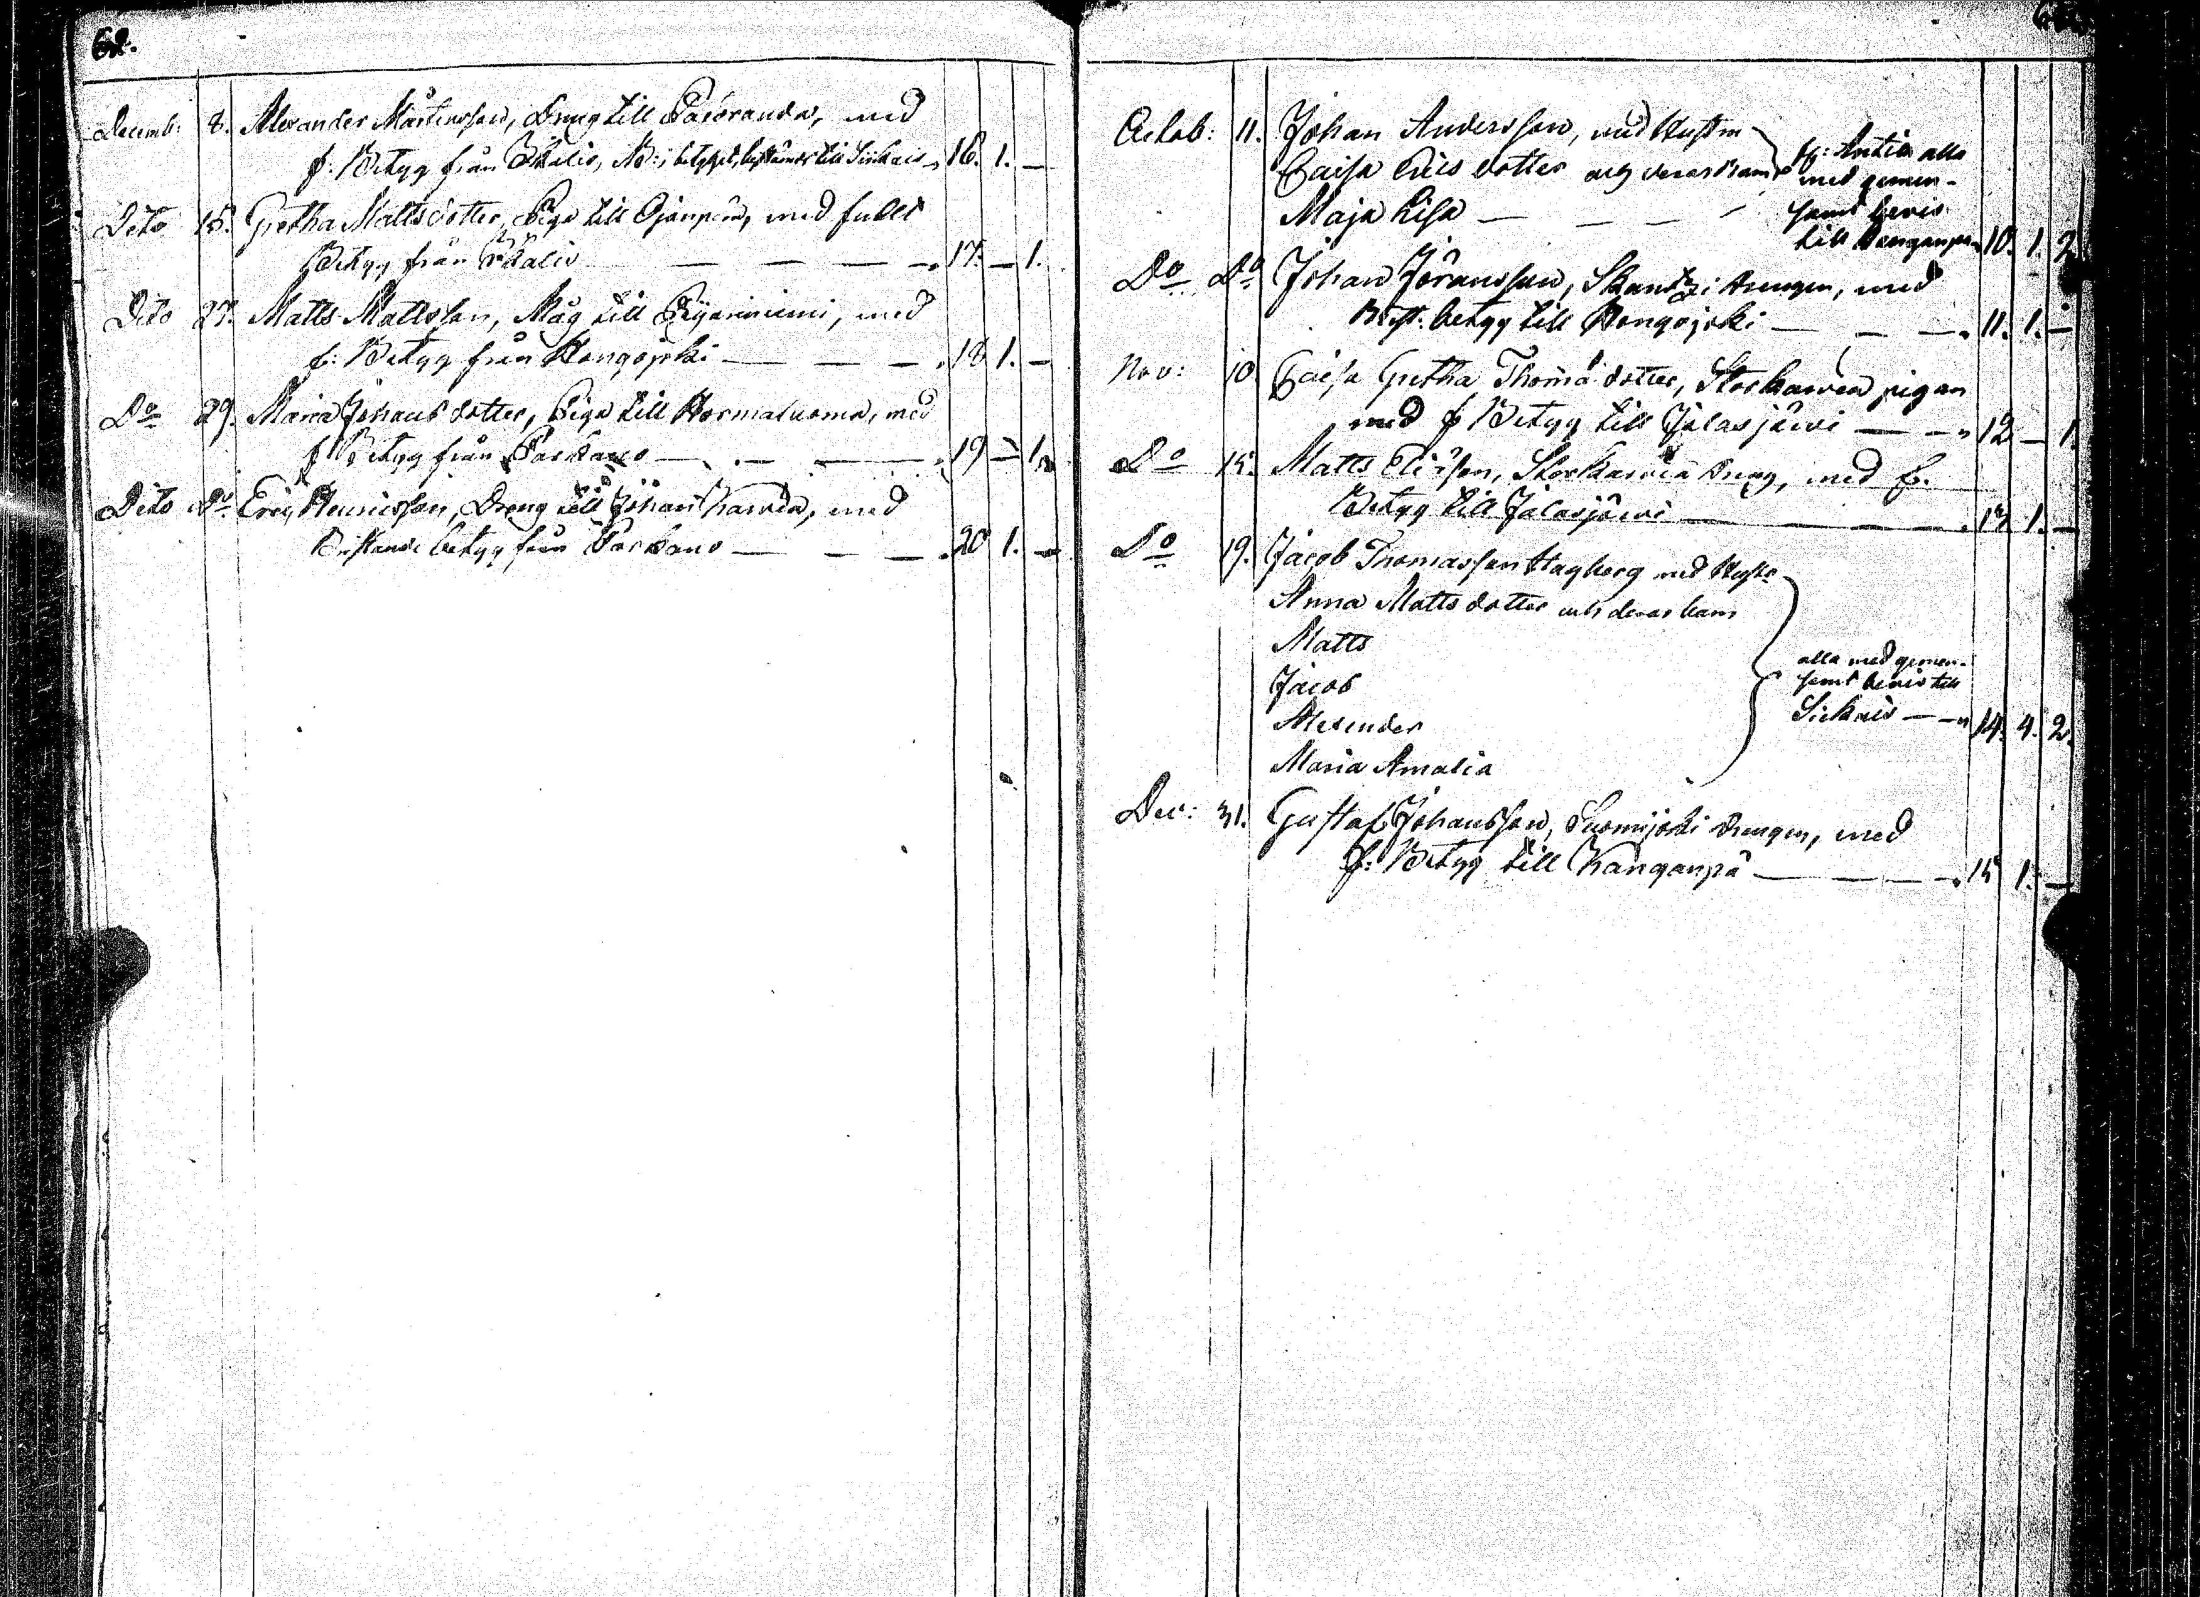 62.
Decemb: 8. Alexander Mårtensson, Dreng till Pasoranda, med
f: Betyg från Ikalis, NB: i betyget, bestämdt till Siikais 16. 1. —
Dito 15. Gretha Mattsdotter, Piga till Ojanpää, med fullt
Betyg från Ikalis — — — — 17. — 1.
Dito 27. Matts Mattsson, Måg till Kyäriniemi, med
f: Betyg från Hongojoki — — — 18 1. —
Do 29. Maria Johansdotter, Piga till Hormaluoma, med
f Betyg från Parkano — — — 19 — 1.
Dito Do Eric Henricsson, Dreng till Johan Karvia, med
Bristande betyg från Parkano — — — 20 1. —
Octob: 11. Johan Andersson, med Hustru
Caisa Erics dotter och deras barn
Maja Lisa — — — —
fr: Antila alla
med gemen-
samt bevis
till 10. 1. 2
Do Do Johan Jöransson, Skantzi drengen, med
Brist. betyg till Hongojoki — — — 11. 1. —
Nov: 10 Caisa Gretha Thomædotter, Storkarvia pigan
med f Betyg till Jalasjärvi — — 12 — 1.
Do 15. Matts Elisson, Storkarvia dreng, med f.
Betyg till Jalasjärvi — — — 13 1. —
Do 19. Jacob Thomasson Hagberg med Hustr
Anna Matts dotter och deras barn
Matts
Jacob
Alexander
Maria Amalia
alla med gemen-
samt bevis till
Siikais — — 14. 4. 2.
Dec: 31. Gustaf Johansson, Suomijoki drengen, med
f: Betyg till Kanganpä — — — — 15 1. —